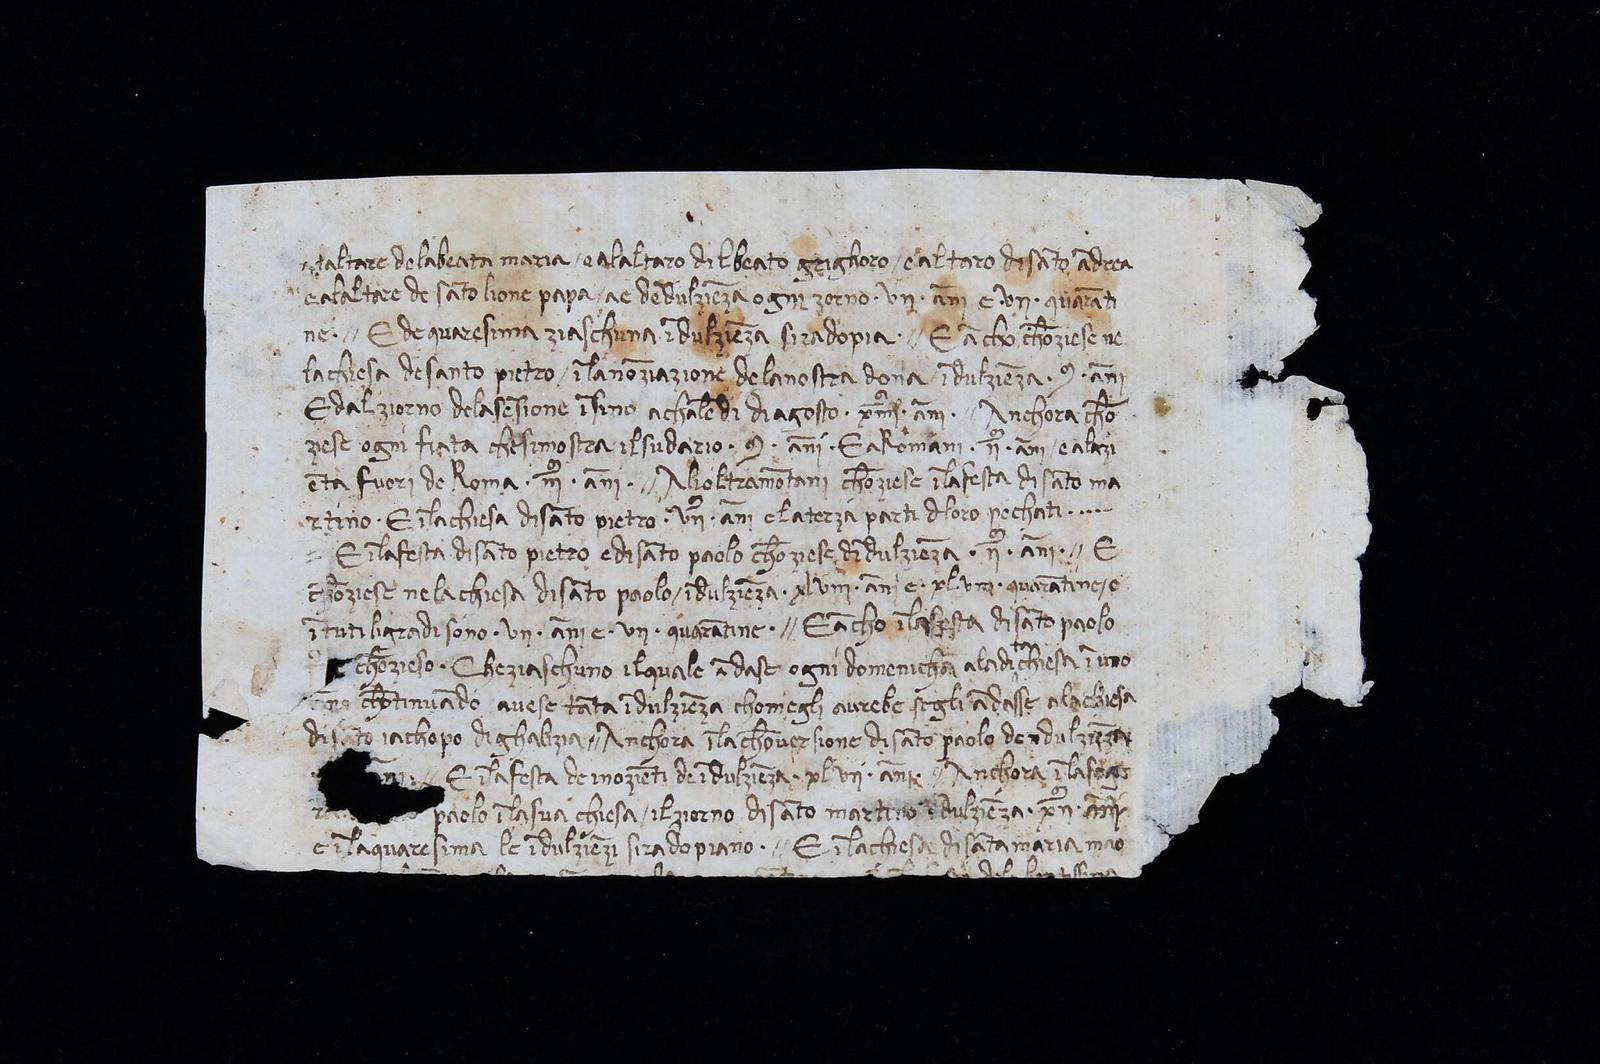 altare delabeata maria / e alaltaro dilbeato gr̄ighoro / e altaro disāto ādrea
e alaltare de sāto lione papa / ae dēdulziēza ogni zorno · vij · āni e vij · quarāti
ne · // E de quaresima ziaschuna īdulziēza siradopia · // E ācho chōziese ne
lachiesa desanto pietro / īlanōziazione delanostra dona / īdulziēza · ꝯ · āni
E dal ziorno delasēsione īsino achalēdi diagosto · āni · // Anchora chō
ziese ogni fiata chesimostra ilsudario · ꝯ · āni · E aRomani · ij · āni / e alazi
ēta fuori de Roma · iij · āni · // Alioltramōtani chōziese īlafesta disāto ma
rtino · E īlachiesa disāto pietro · vij · āni elaterza parti d loro pechati · ····
E īlafesta disāto pietro edisāto paolo chōziese dīdulziēza · ij · āni · // E
chōziese nelachiesa disāto paolo / īdulziēza · xlviij · āni e · xlviij · quarātine / e
ī tuti ligradi sono · vij · āni e · vij · quarātine · // E ācho īlafesta disāto paolo
chōzieso · Che ziaschuno ilquale ādase ogni domenicha aladitachiesa ī uno
chōtinuādo avese tāta īdulziēza chomegli averebe segli ādasse alachiesa
disāto iachopo dighalizia // Anchora īlachōversione disāto paolo de īdulziēza
āni · // E īlafesta de inozieti de īdulziēza · xlvij · āni · // Anchora īla
paolo īlasua chiesa / ilziorno disāto martino īdulziēza · āni
e īlaquaresima le īdulziēzi siradopiano · // E īlachiesa disāta maria mao